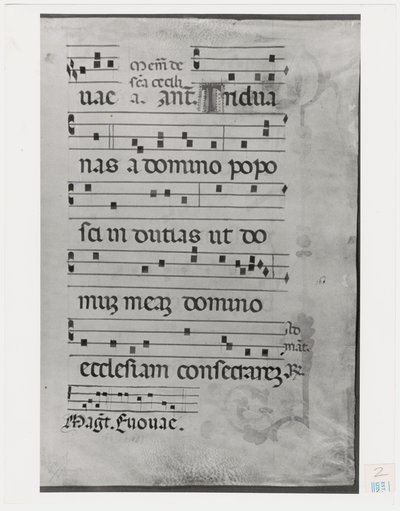 Mem̄ de
sc̄a cecili
uae a. Ant̄. Triduа
nas a domino popo
sci in ducias ut do
muꝫ meaꝫ domino
ecclesiam consecrareꝫ
Mag̅t. Euouae.
2